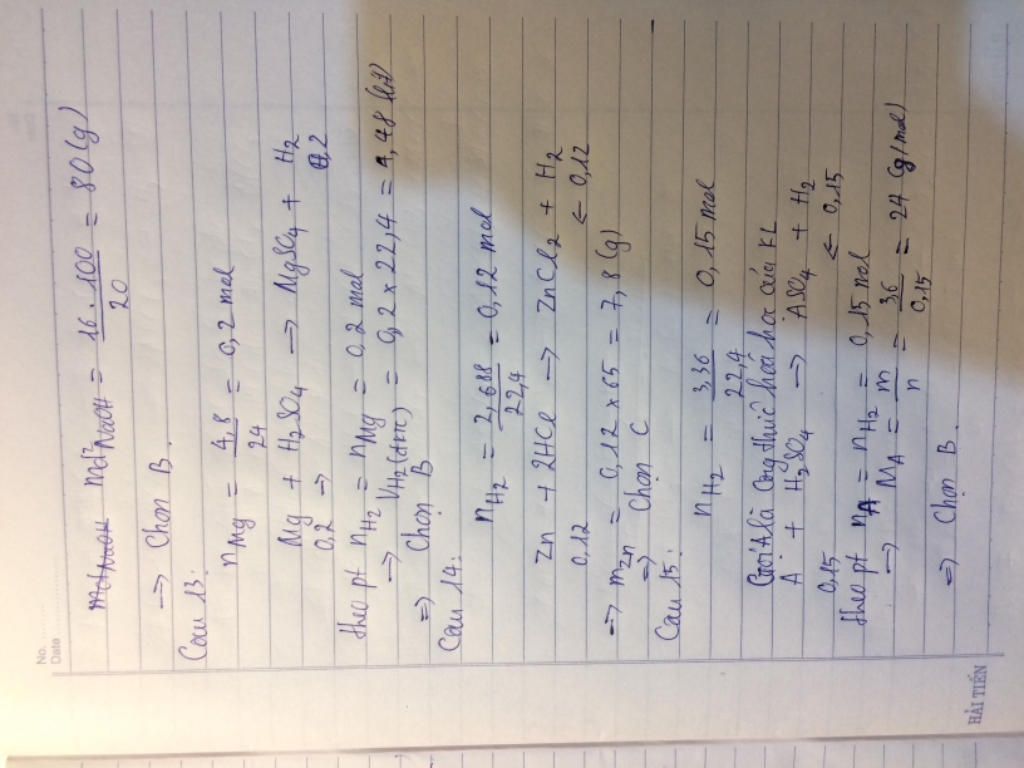 No. ............
Date ............
mddNaOH = 16 . 100 / 20 = 80 (g)
→ Chọn B.
Câu 13:
nMg = 4,8 / 24 = 0,2 mol
Mg + H2SO4 → MgSO4 + H2
0,2 → 0,2
theo pt nH2 = nMg = 0,2 mol
→ VH2(đktc) = 0,2 x 22,4 = 4,48 (lít)
=> Chọn B
Câu 14:
nH2 = 2,688 / 22,4 = 0,12 mol
Zn + 2HCl → ZnCl2 + H2
0,12 ← 0,12
→ mZn = 0,12 x 65 = 7,8 (g)
=> Chọn C
Câu 15:
nH2 = 3,36 / 22,4 = 0,15 mol
Gọi A là Công thức hoá học của KL
A + H2SO4 → ASO4 + H2
0,15 ← 0,15
theo pt nA = nH2 = 0,15 mol
→ MA = m / n = 3,6 / 0,15 = 24 (g/mol)
=> Chọn B.
HẢI TIẾN